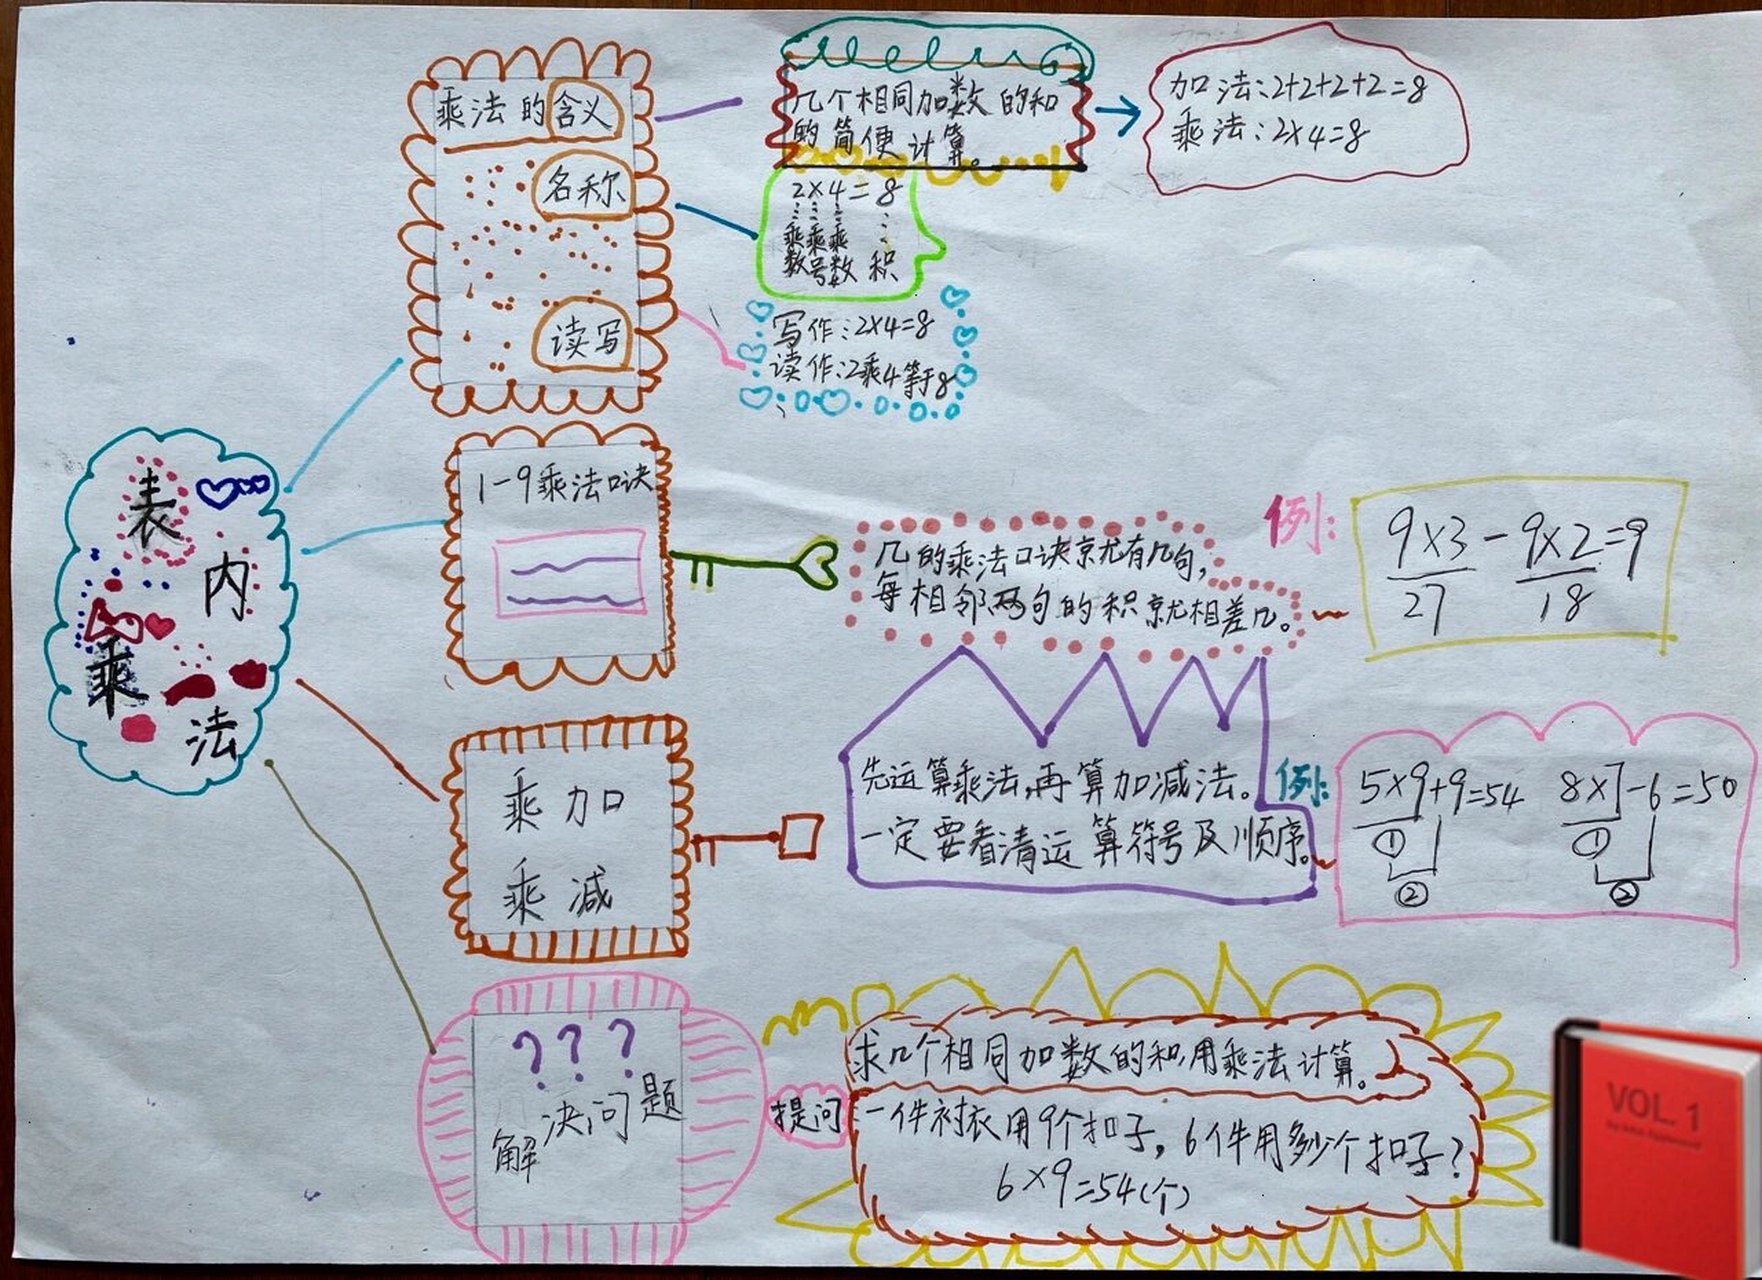 表内乘法
乘法的含义
名称
读写
几个相同加数的和
的简便计算。
加法:2+2+2+2=8
乘法:2×4=8
2×4=8
乘乘乘
数号数 积
写作:2×4=8
读作:2乘4等于8
1-9乘法口诀
几的乘法口诀就有几句,
每相邻两句的积就相差几。
例:
9×3-9×2=9
27 18
乘加
乘减
先运算乘法,再算加减法。
一定要看清运算符号及顺序。
例:
5×9+9=54 8×7-6=50
① ①
② ②
???
解决问题
提问
求几个相同加数的和,用乘法计算。
一件衬衣用9个扣子,6件用多少个扣子?
6×9=54(个)
VOL. 1